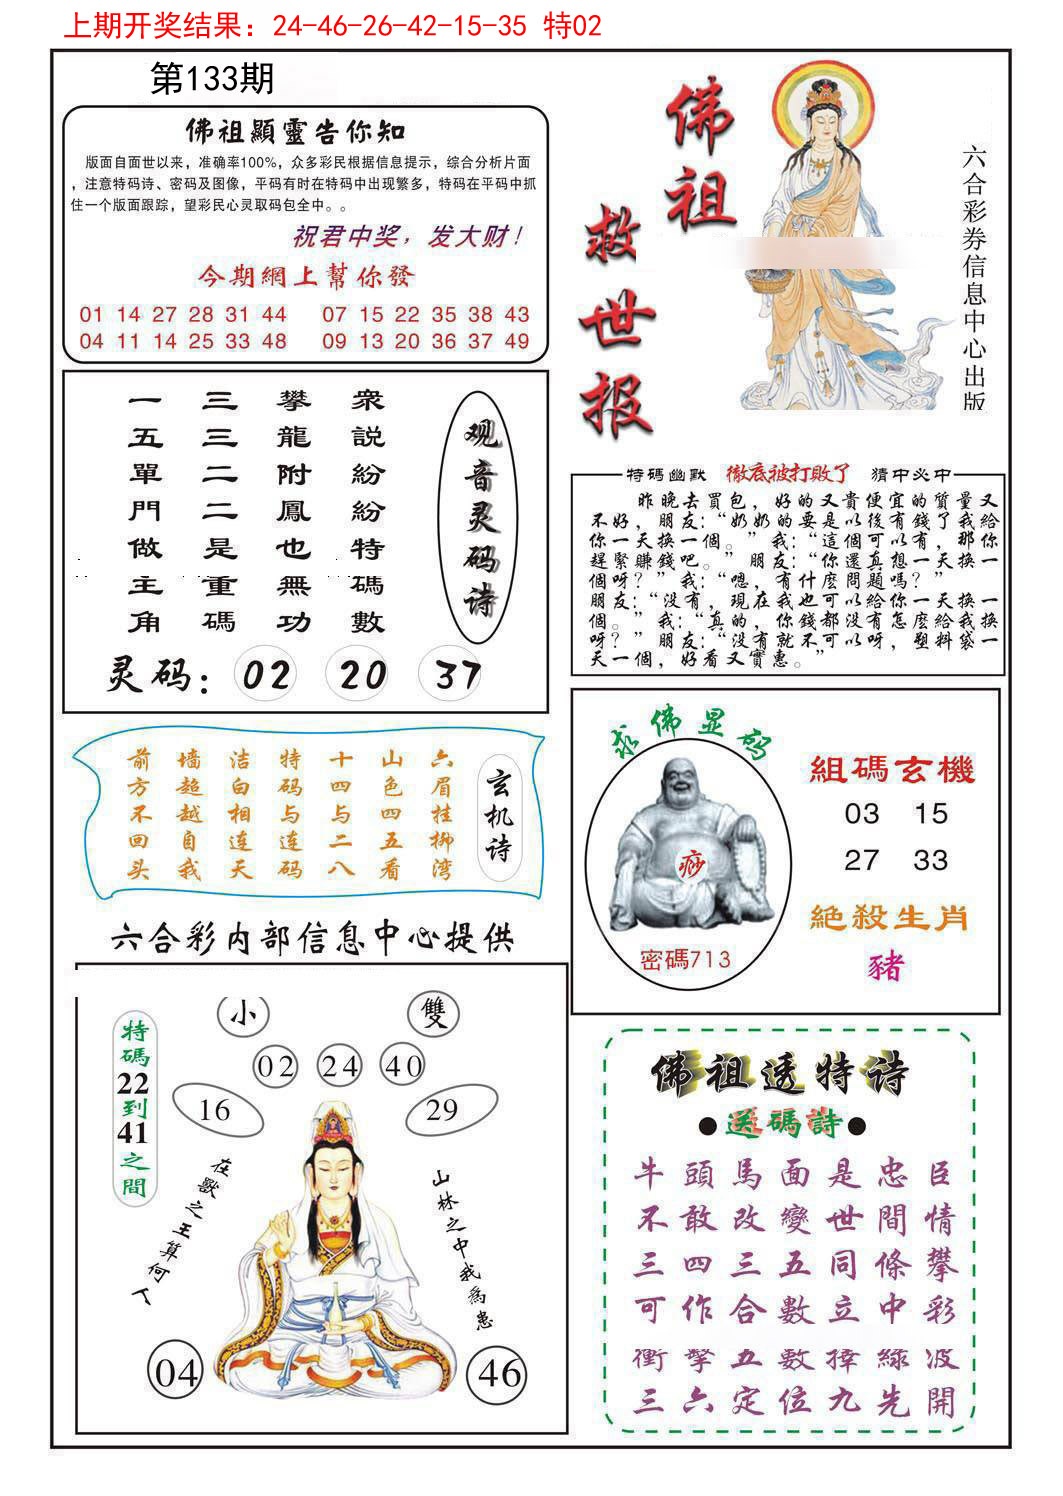 上期开奖结果：24-46-26-42-15-35 特02
第133期
佛祖顯靈告你知
版面自面世以来，准确率100%，众多彩民根据信息提示，综合分析片面
，注意特码诗、密码及图像，平码有时在特码中出现繁多，特码在平码中抓
住一个版面跟踪，望彩民心灵取码包全中。。
祝君中奖，发大财！
今期網上幫你發
01 14 27 28 31 44 07 15 22 35 38 43
04 11 14 25 33 48 09 13 20 36 37 49
佛祖
救世报
六合彩券信息中心出版
衆說紛紛特碼數
攀龍附鳳也無功
三三二二是重碼
一五單門做主角
观音灵码诗
灵码：02 20 37
特碼幽默 徹底被打敗了 猜中必中
昨晚去買包，好的又貴便宜的質量又
不好，朋友：“奶奶的要是以後有錢了我給
你一天换一個。”我：“這個可以有，那你
趕緊賺錢吧。”朋友：“你還真想一天换一
個呀？”我：“嗯，有什麽問題嗎？”
朋友：“没有，現在我也可以給你一天换一
個。”我：“真的，你錢都没有怎麽給我换
呀？”朋友：“没有就不可以呀，塑料袋一
天一個，好看又實惠。”
六眉挂柳湾
山色四五看
十四与二八
特码与连码
洁白相连天
墙超越自我
前方不回头
玄机诗
求佛显码
痧
密碼713
組碼玄機
03 15
27 33
絕殺生肖
豬
六合彩内部信息中心提供
小 雙
02 24 40
16 29
特碼22到41之間
在獸之王算何人
山林之中我爲患
04 46
佛祖透特诗
●送碼詩●
牛頭馬面是忠臣
不敢改變世間情
三四三五同條攀
可作合數立中彩
衝擊五數摔綠波
三六定位九先開